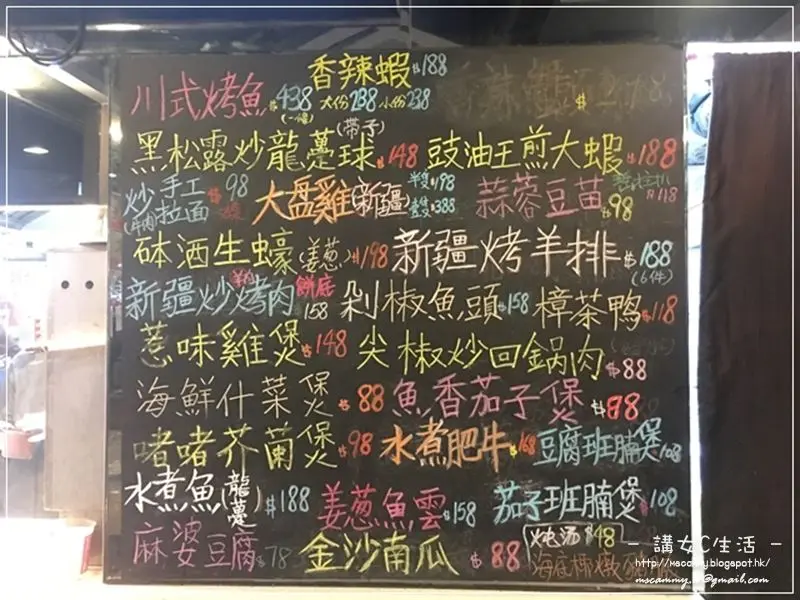 香辣蝦 $188
川式烤魚 $438 大份238 小份238
(一條)
(帶子)
黑松露炒龍躉球 $148 豉油王煎大蝦 $188
炒手工拉面 $98
(牛肉)
大盤雞(新疆) 半隻198 $388
蒜蓉豆苗 $98
砵酒生蠔(姜葱) $198 新疆烤羊排 $188
(6件)
新疆炒烤肉 餅底 158 剁椒魚頭 $158 樟茶鴨 $118
惹味雞煲 $148 尖椒炒回鍋肉 $88
海鮮什菜煲 $88 魚香茄子煲 $98
啫啫芥蘭煲 $98 水煮肥牛 $168 豆腐班腩煲 108
水煮魚(龍躉) $188 姜葱魚雲 $158 茄子班腩煲 $108
麻婆豆腐 $78 金沙南瓜 $88 炖汤 $48
海底椰燉
- 講女C生活 -
http://mscammy.blogspot.hk/